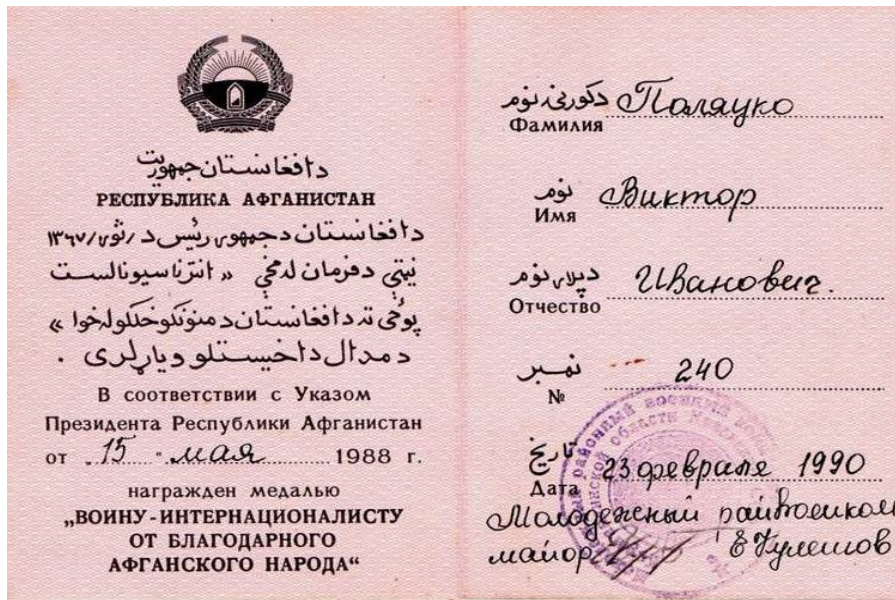 دافغانستان جمهوریت
РЕСПУБЛИКА АФГАНИСТАН
دافغانستان دجمهور رئیس د /ثور/ ۱۳۶۷
نیټې دفرمان له مخې « انترناسیونالست
پوځي ته دافغانستان د منونکو خلکو له خوا »
د مدال د اخیستلو ویاړ لری .
В соответствии с Указом
Президента Республики Афганистан
от „15“ мая 1988 г.
награжден медалью
„ВОИНУ-ИНТЕРНАЦИОНАЛИСТУ
ОТ БЛАГОДАРНОГО
АФГАНСКОГО НАРОДА“
دکورنۍ نوم
Фамилия Поляуко
نوم
Имя Виктор
د پلار نوم
Отчество Иванович.
نمبر
№ 240
تاریخ
Дата 23 февраля 1990
Молодежный райвоенком
майор Кулешов